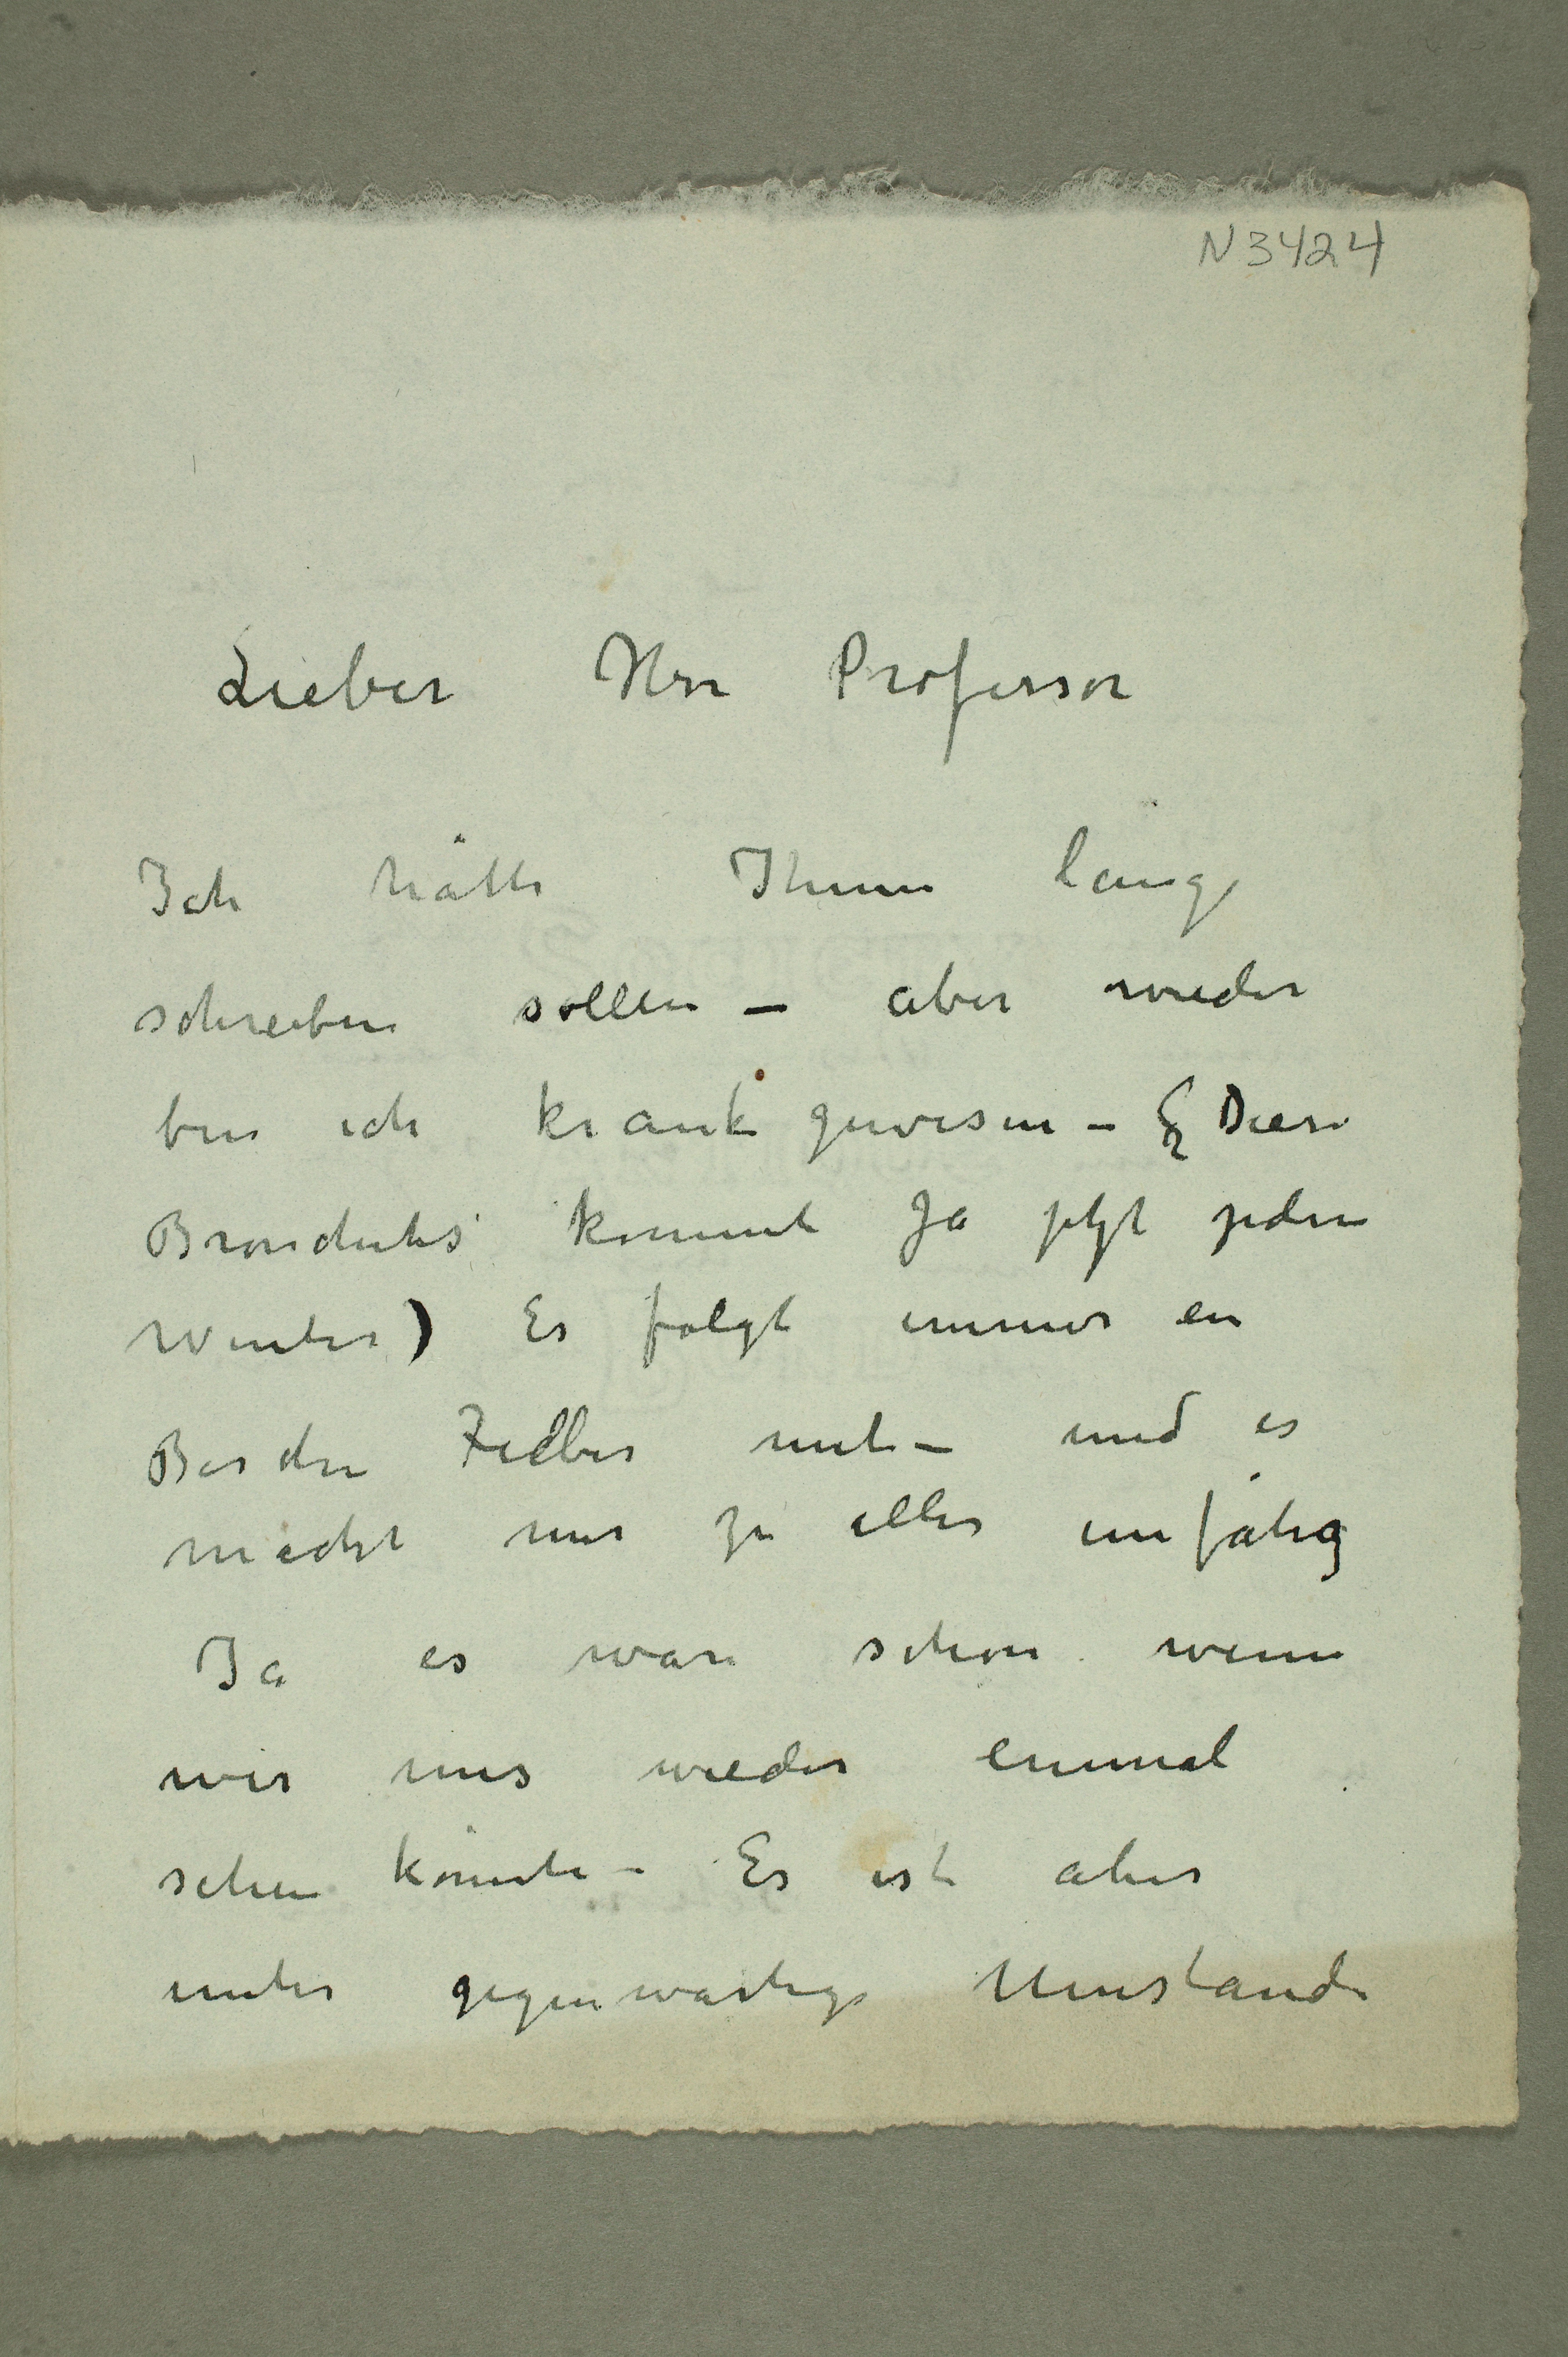 N 3424
Lieber Herr Professor
Ich hätte Ihnen lange
schreiben sollen – aber wieder
bin ich krank gewesen – Diese
Bronchitis kommt ja jetzt jeden
Winter) Es folgt immer ein
Fieber mit – und es
macht mir zu alles unfähig
Ja es wäre schön wenn
wir uns wieder einmal
sehen könnte – Es ist aber
unter gegenwärtige Umstände